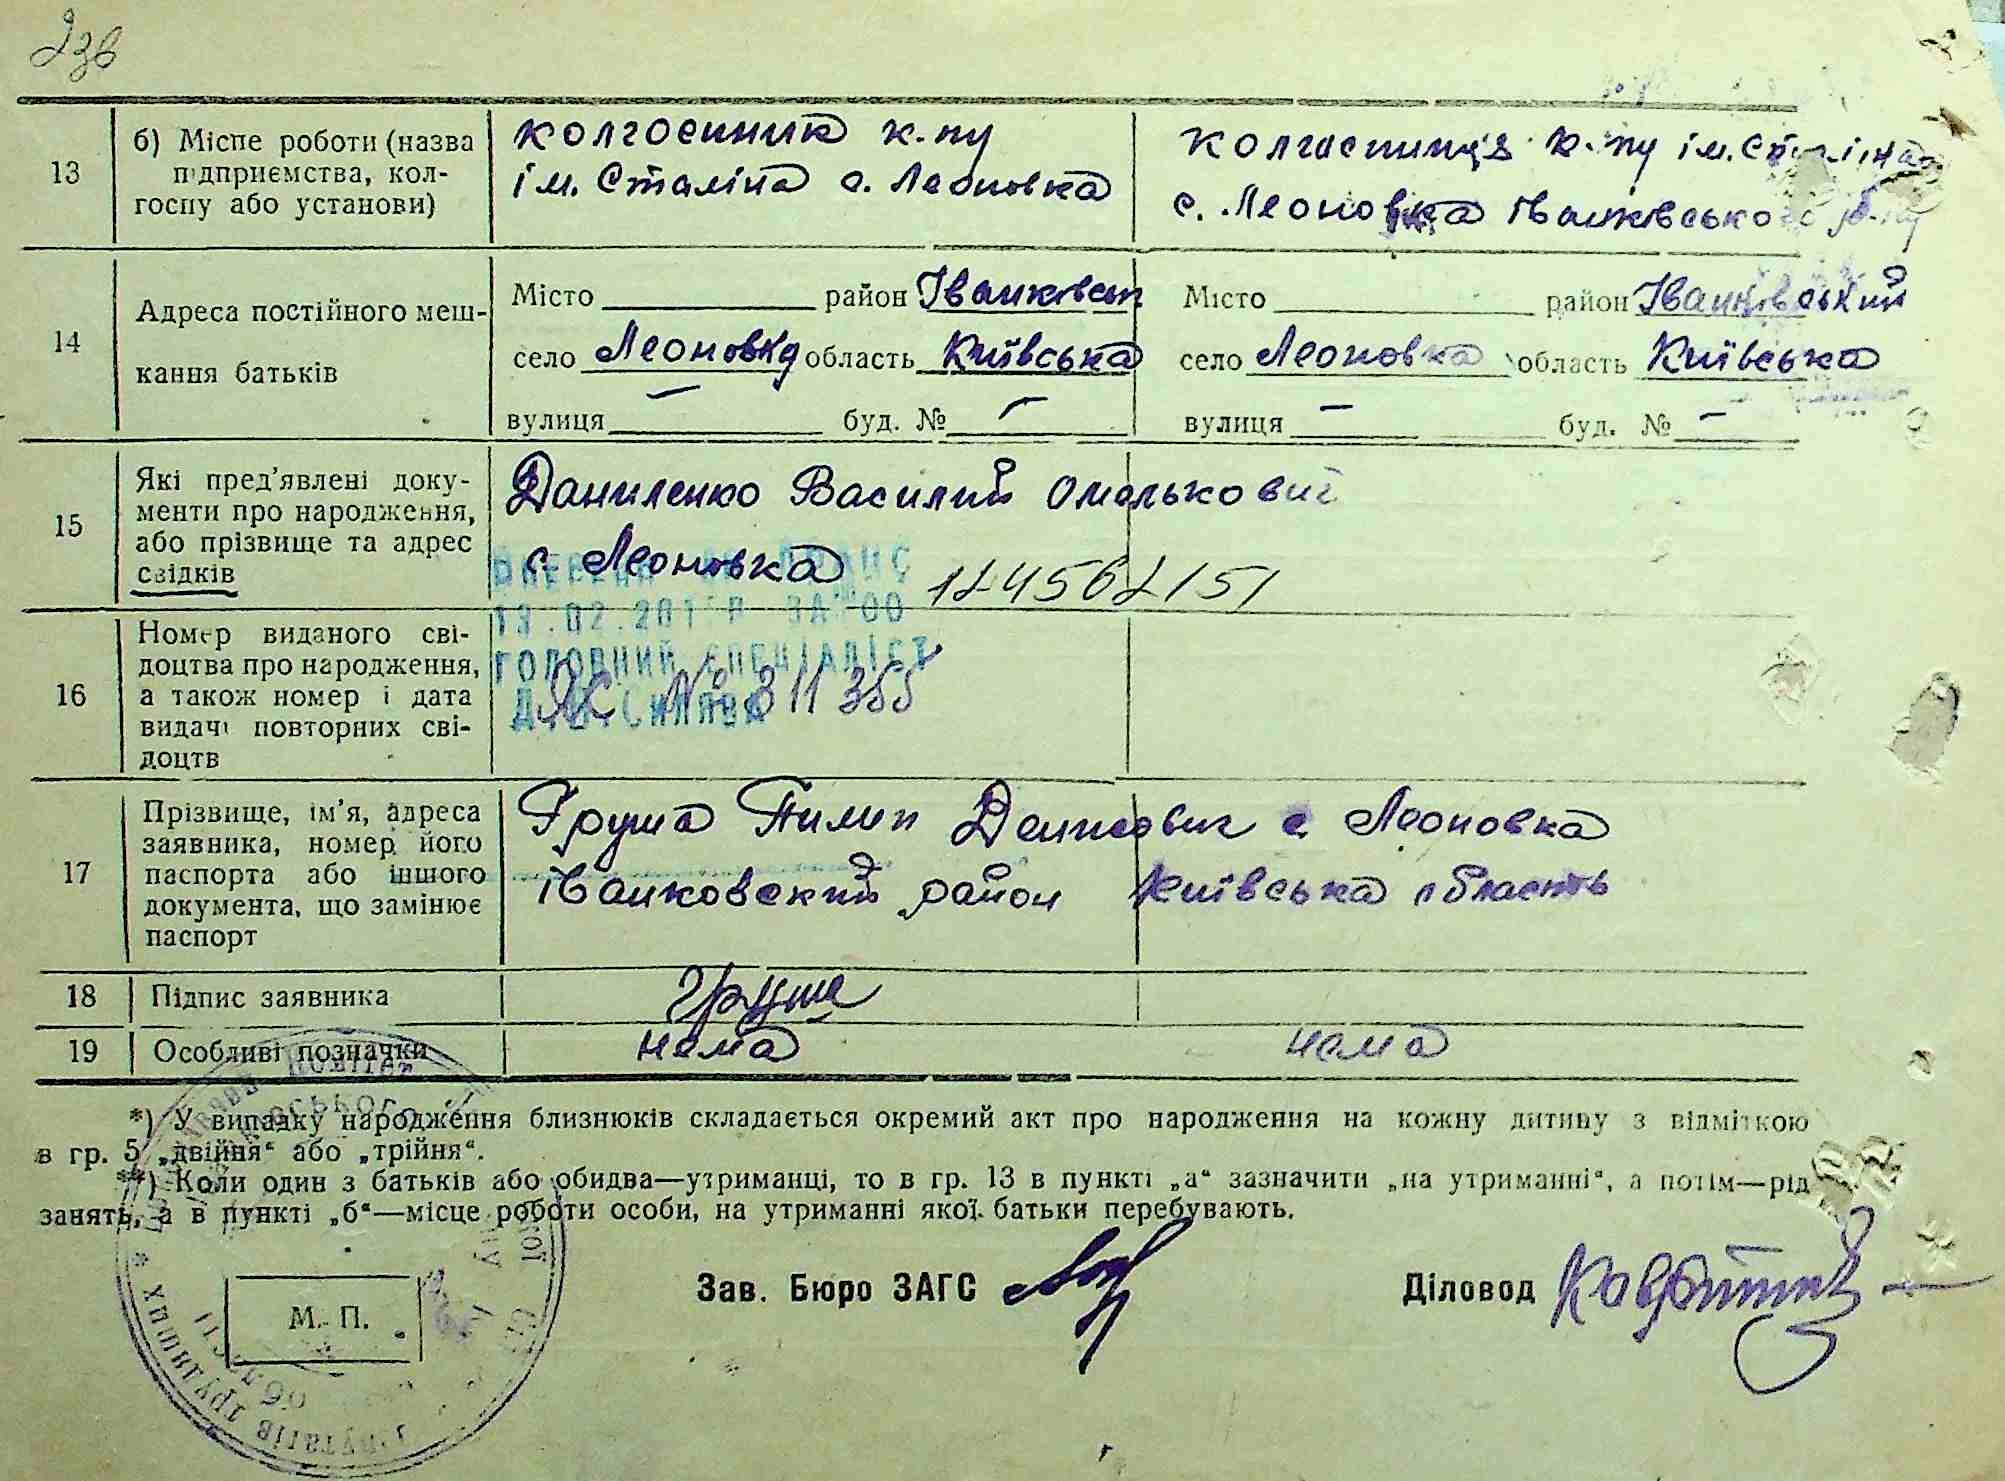 23в
13
б) Місце роботи (назва
підприємства, кол-
госпу або установи)
колгоспник к-пу
ім. Сталіна с. Леоновка
колгоспниця к-пу ім. Сталіна
с. Леоновка Іванківського р-ну
14
Адреса постійного меш-
кання батьків
Місто район Іванковськ
село Леоновка область Київська
вулиця — буд. № —
Місто район Іванківський
село Леоновка область Київська
вулиця — буд. № —
15
Які пред'явлені доку-
менти про народження,
або прізвище та адрес
свідків
Даниленко Василий Омелькович
с. Леоновка
124562151
16
Номер виданого сві-
доцтва про народження,
а також номер і дата
видачі повторних сві-
доцтв
13.02.201 ЗА № 00
ГОЛОВНИЙ СПЕЦІАЛІСТ
№ 811355
17
Прізвище, ім'я, адреса
заявника, номер його
паспорта або іншого
документа, що замінює
паспорт
Груша Пилип Денисович с Леоновка
Іванковский район Київська область
18
Підпис заявника
Груша
19
Особливі позначки
нема
нема
*) У випадку народження близнюків складається окремий акт про народження на кожну дитину з відміткою
в гр. 5 „двійня“ або „трійня“.
**) Коли один з батьків або обидва—утриманці, то в гр. 13 в пункті „а“ зазначити „на утриманні“, а потім—рід
занять, а в пункті „б“—місце роботи особи, на утриманні якої батьки перебувають.
М. П.
Зав. Бюро ЗАГС
Діловод
депутатів трудящих